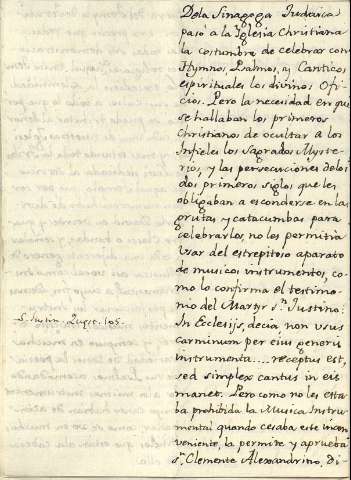 Dela Sinagoga Judaica
paso a la Iglesia Christiana
la costumbre de celebrar con
Hymnos, Psalmos, y Canticos
espirituales los divinos Ofi-
cios. Pero la necesidad en que
se hallaban los primeros
Christianos de ocultar a los
Infieles los Sagrados Myste-
rios, y las persecuciones delos
dos primeros siglos que les
obligaban a esconderse en las
grutas y catacumbas para
celebrarlos, no les permitia
usar del estrepitoso aparato
de musicos instrumentos, co-
mo lo confirma el testimo-
nio del Martyr Sn. Justino:
S. Justin. Quæst. 105.
In Ecclesijs, decia, non usus
carminum per ejus generis
instrumenta.... receptus est,
sed simplex cantus in eis
manet. Pero como no les esta-
ba prohibida la Musica Instru-
mental quando cesaba este incon-
veniente, la permite y aprueba
Sn. Clemente Alexandrino, di-